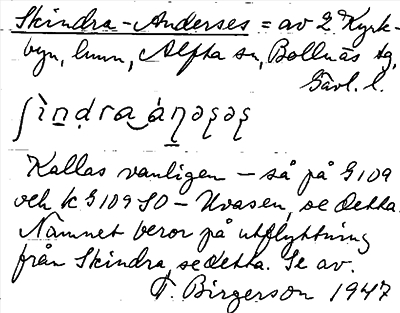 Skindra-Anderses = av 2 Kyrk-
byn, hmn, Alfta sn, Bollnäs tg,
Gävl. l.
ʃìṇḍra‿áṇəʂəʂ
Kallas vanligen – så på G 109
och k G 109 SO – Uvasen, se detta.
Namnet beror på utflyttning
från Skindra, se detta. Se av.
T. Birgerson 1947